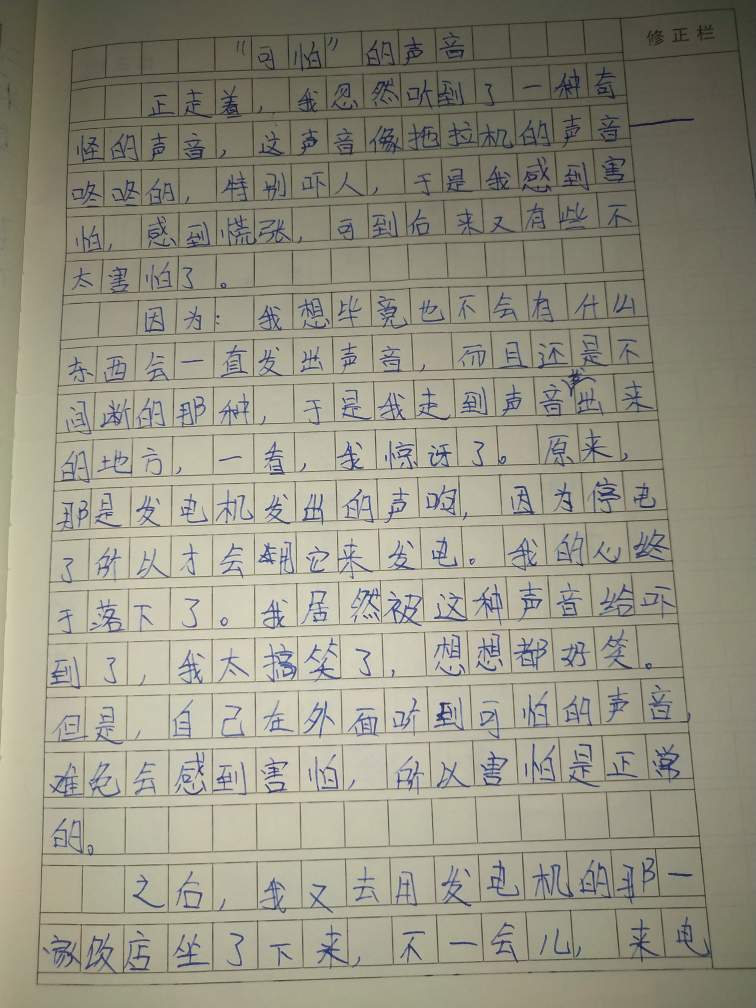 修正栏
“可怕”的声音
正走着，我忽然听到了一种奇
怪的声音，这声音像拖拉机的声音
咚咚的，特别吓人，于是我感到害
怕，感到慌张，可到后来又有些不
太害怕了。
因为：我想毕竟也不会有什么
东西会一直发出声音，而且还是不
间断的那种，于是我走到声音发出来
的地方，一看，我惊讶了。原来，
那是发电机发出的声响，因为停电
了所以才会用它来发电。我的心终
于落下了。我居然被这种声音给吓
到了，我太搞笑了，想想都好笑。
但是，自己在外面听到可怕的声音，
难免会感到害怕，所以害怕是正常
的。
之后，我又去用发电机的那一
家饭店坐了下来，不一会儿，来电